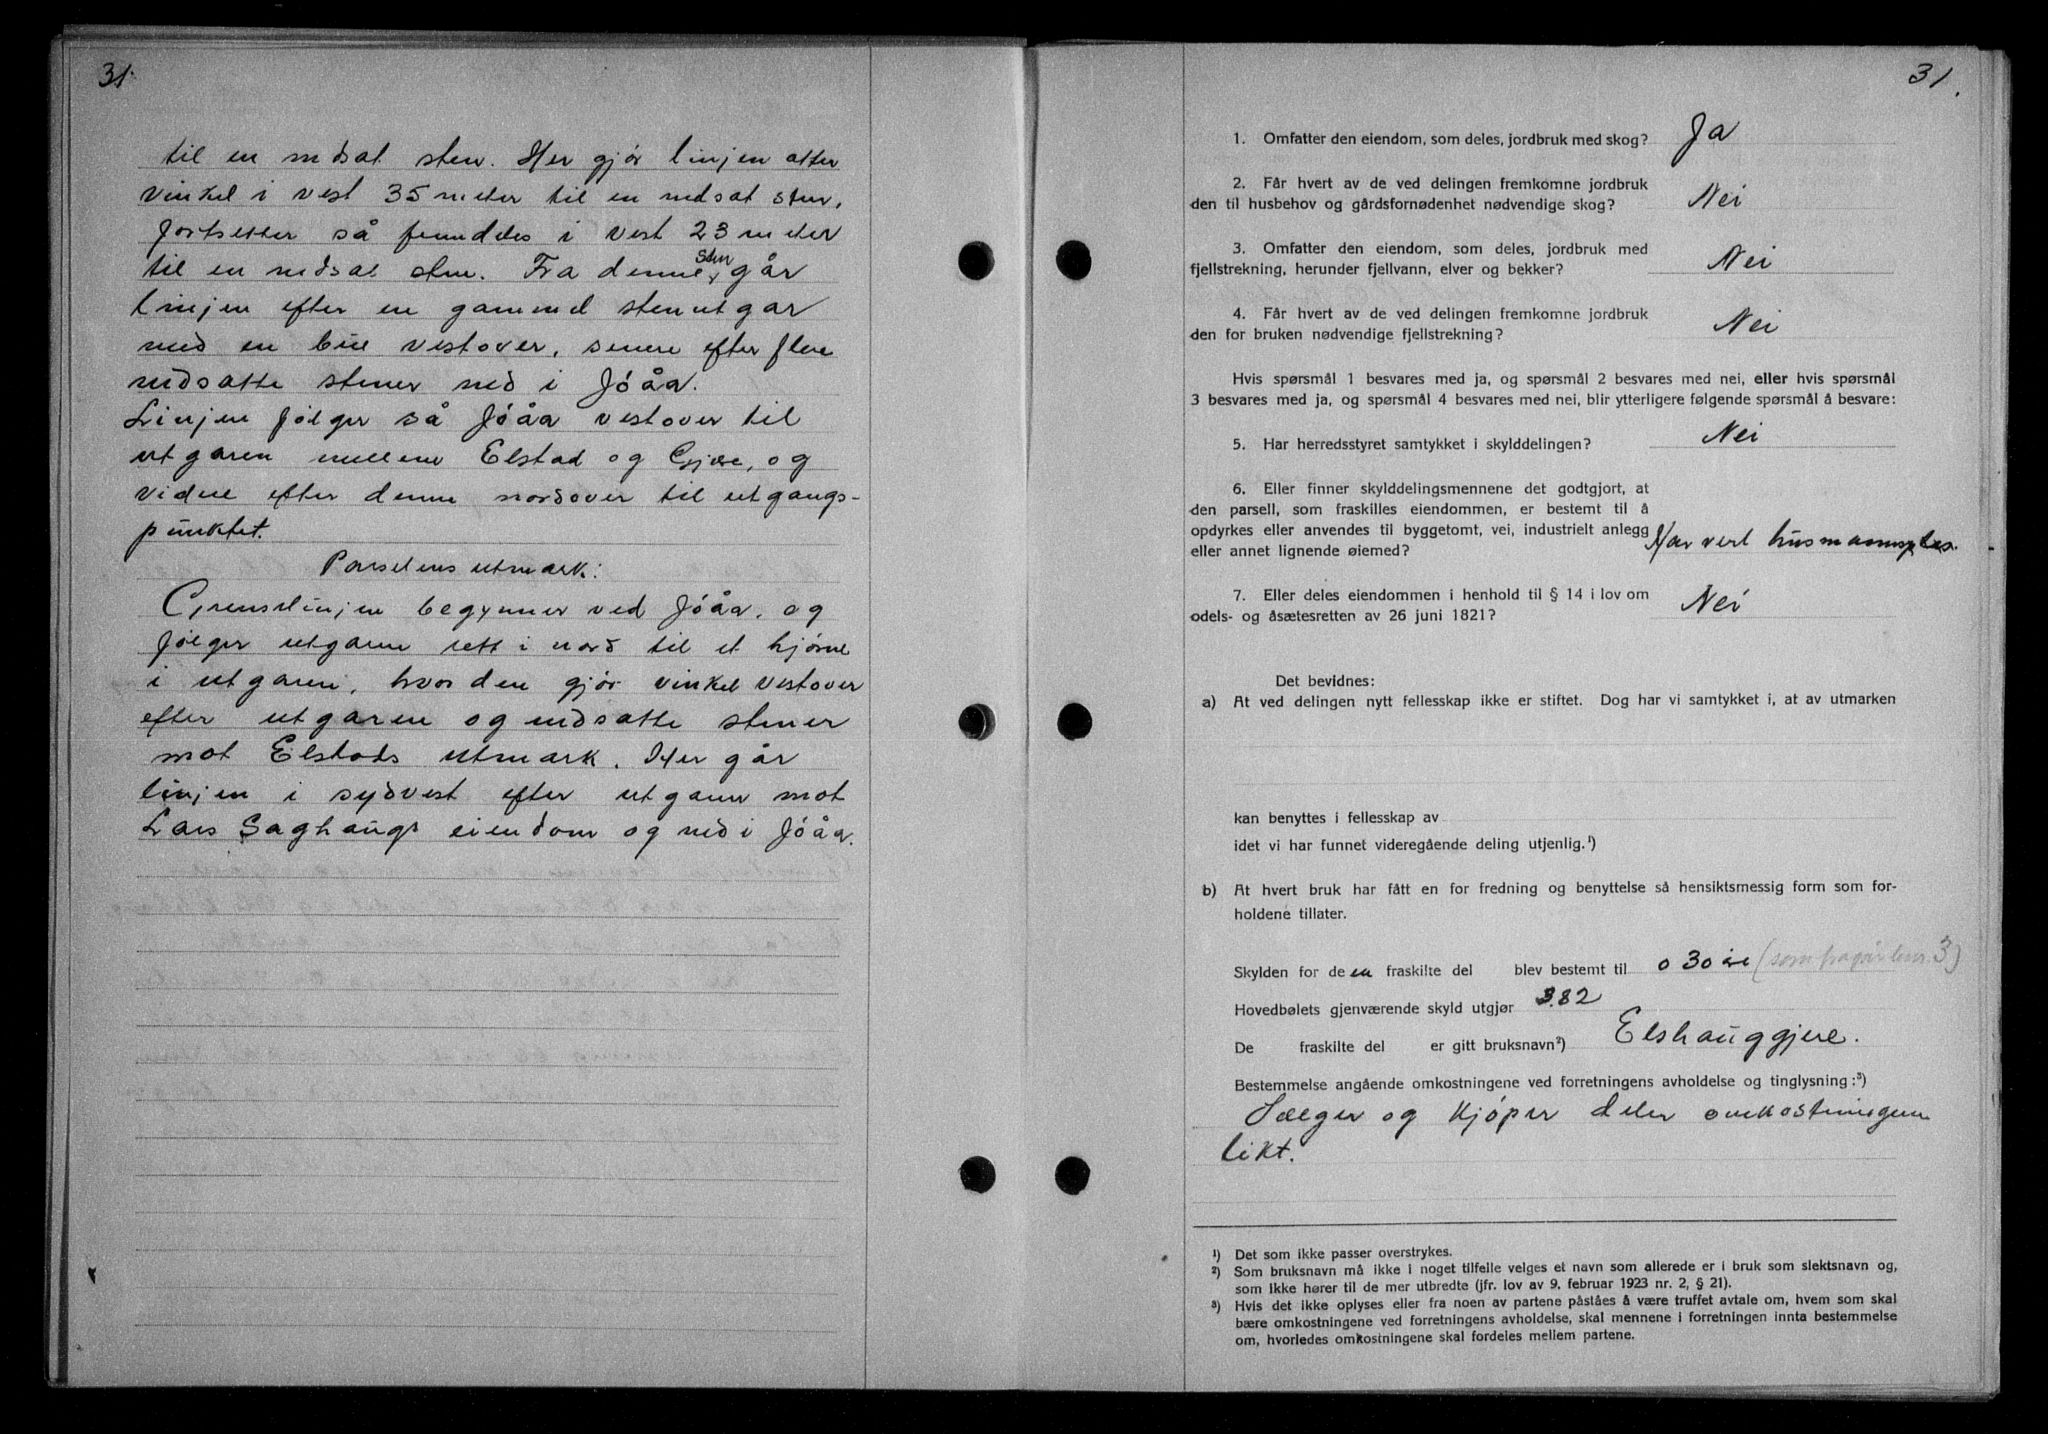 31.
til en nedsat sten. Her gjør linjen atter
vinkel i vest 35 meter til en nedsat sten,
fortsetter så fremdeles i vest 23 meter
til en nedsat sten. Fra denne sten går
linjen efter en gammel stenutgar
med en bue vestover, senere efter flere
nedsatte stener ned i Jóåa.
Linjen følger så Jóåa vestover til
utgaren mellem Elstad og Gjære, og
videre efter denne nordover til utgangs-
punktet.
Parselens utmark:
Grenselinjen begynner ved Jóåa, og
følger utgaren rett i nord til et hjørne
i utgaren, hvor den gjør vinkel vestover
efter utgaren og nedsatte stener
mot Elstads utmark. Her går
linjen i sydvest efter utgaren mot
Lars Saghaugs eiendom og ned i Jóåa.
31.
1. Omfatter den eiendom, som deles, jordbruk med skog? Ja
2. Får hvert av de ved delingen fremkomne jordbruk
den til husbehov og gårdsfornødenhet nødvendige skog? Nei
3. Omfatter den eiendom, som deles, jordbruk med
fjellstrekning, herunder fjellvann, elver og bekker? Nei
4. Får hvert av de ved delingen fremkomne jordbruk
den for bruken nødvendige fjellstrekning? Nei
Hvis spørsmål 1 besvares med ja, og spørsmål 2 besvares med nei, eller hvis spørsmål
3 besvares med ja, og spørsmål 4 besvares med nei, blir ytterligere følgende spørsmål å besvare:
5. Har herredsstyret samtykket i skylddelingen? Nei
6. Eller finner skylddelingsmennene det godtgjort, at
den parsell, som fraskilles eiendommen, er bestemt til å
opdyrkes eller anvendes til byggetomt, vei, industrielt anlegg
eller annet lignende øiemed? Har vert husmannsplas.
7. Eller deles eiendommen i henhold til § 14 i lov om
odels- og åsætesretten av 26 juni 1821? Nei
Det bevidnes:
a) At ved delingen nytt fellesskap ikke er stiftet. Dog har vi samtykket i, at av utmarken
kan benyttes i fellesskap av
idet vi har funnet videregående deling utjenlig.¹)
b) At hvert bruk har fått en for fredning og benyttelse så hensiktsmessig form som for-
holdene tillater.
Skylden for de en fraskilte del blev bestemt til 0 30 øre (som fragår lnr. 3)
Hovedbølets gjenværende skyld utgjør 3.82
De fraskilte del er gitt bruksnavn²) Elshauggjere.
Bestemmelse angående omkostningene ved forretningens avholdelse og tinglysning:³)
Sælger og kjøper deler omkostningene
likt.
¹) Det som ikke passer overstrykes.
²) Som bruksnavn må ikke i noget tilfelle velges et navn som allerede er i bruk som slektsnavn og,
som ikke hører til de mer utbredte (jfr. lov av 9. februar 1923 nr. 2, § 21).
³) Hvis det ikke oplyses eller fra noen av partene påståes å være truffet avtale om, hvem som skal
bære omkostningene ved forretningens avholdelse, skal mennene i forretningen innta bestemmelse
om, hvorledes omkostningene skal fordeles mellem partene.